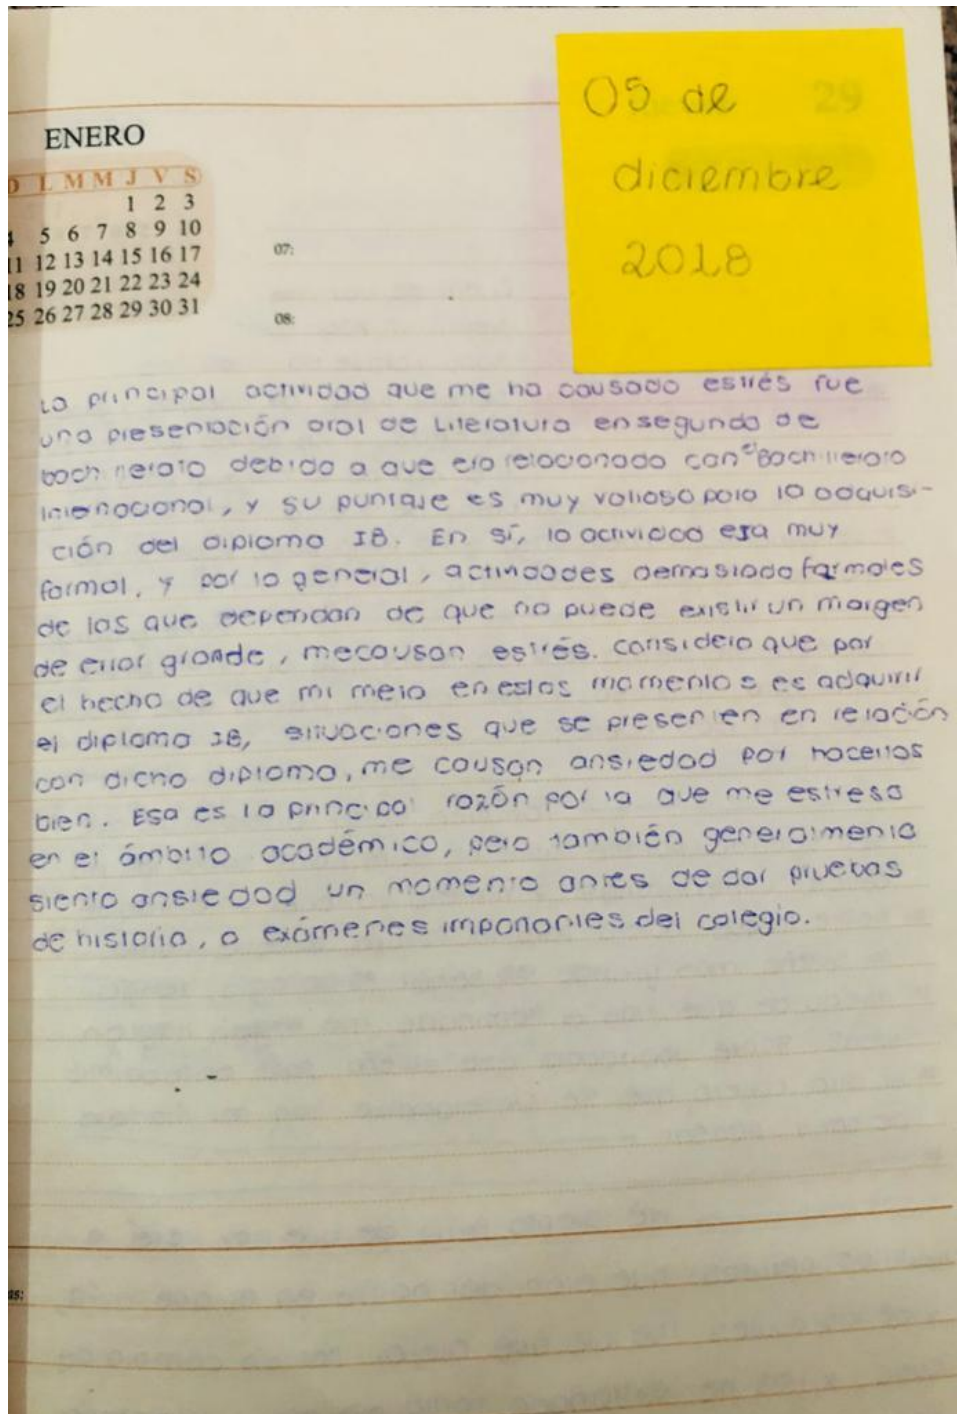 05 de
diciembre
2018
29
ENERO
D L M M J V S
1 2 3
4 5 6 7 8 9 10
11 12 13 14 15 16 17
18 19 20 21 22 23 24
25 26 27 28 29 30 31
07:
08:
La principal actividad que me ha causado estrés fue
una presentación oral de Literatura en segundo de
bachillerato debido a que era relacionado con el Bachillerato
Internacional, y su puntaje es muy valioso para la adquisi-
ción del diploma IB. En sí, la actividad era muy
formal, y por lo general, actividades demasiado formales
de las que dependan de que no puede existir un margen
de error grande, me causan estrés. Considero que por
el hecho de que mi meta en estos momentos es adquirir
el diploma IB, situaciones que se presenten en relación
con dicho diploma, me causan ansiedad por hacerlas
bien. Esa es la principal razón por la que me estreso
en el ámbito académico, pero también generalmente
siento ansiedad un momento antes de dar pruebas
de historia, o exámenes importantes del colegio.
as: